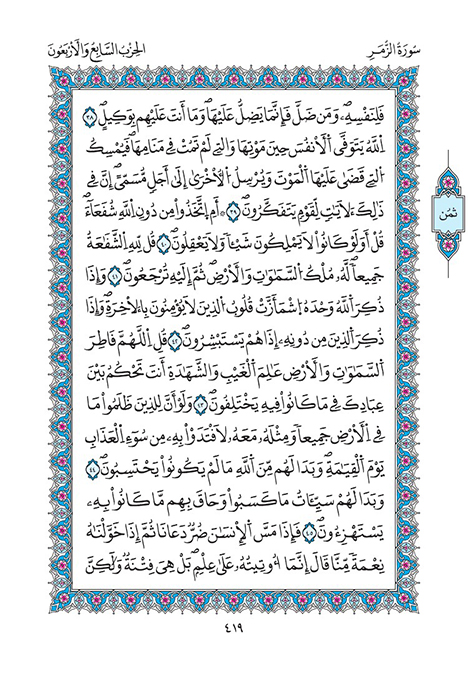 سُورَةُ الزُّمَرِ
الحِزْبُ السَّابِعُ وَالْأَرْبَعُونَ
فَلِنَفْسِهِۦ وَمَن ضَلَّ فَإِنَّمَا يَضِلُّ عَلَيْهَا وَمَا أَنتَ عَلَيْهِم بِوَكِيلٍ ٣٨
اِ۬للَّهُ يَتَوَفَّى اَ۬لْأَنفُسَ حِينَ مَوْتِهَا وَالتِے لَمْ تَمُتْ فِے مَنَامِهَا فَيُمْسِكُ
اُ۬لتِے قَضَىٰ عَلَيْهَا اَ۬لْمَوْتَ وَيُرْسِلُ اُ۬لْأُخْر۪ىٰ إِلَىٰ أَجَلٍ مُّسَمًّىۖ اِنَّ فِے
ذَٰلِكَ ءَلَايَٰتٍ لِّقَوْمٍ يَتَفَكَّرُونَ ٣٩ أَمِ اِ۪تَّخَذُواْ مِن دُونِ اِ۬للَّهِ شُفَعَآءَ
قُلَ اَوَلَوْ كَانُواْ لَا يَمْلِكُونَ شَيْـٔاً وَلَا يَعْقِلُونَ ٤٠ قُل لِّلهِ اِ۬لشَّفَٰعَةُ
جَمِيعاً لَّهُۥ مُلْكُ اُ۬لسَّمَٰوَٰتِ وَالْأَرْضِ ثُمَّ إِلَيْهِ تُرْجَعُونَ ٤١ وَإِذَا
ذُكِرَ اَ۬للَّهُ وَحْدَهُ اُ۪شْمَأَزَّتْ قُلُوبُ اُ۬لذِينَ لَا يُؤْمِنُونَ بِالْأٓخِرَةِ وَإِذَا
ذُكِرَ اَ۬لذِينَ مِن دُونِهِۦٓ إِذَا هُمْ يَسْتَبْشِرُونَ ٤٢ قُلِ اِ۬للَّهُمَّ فَاطِرَ
اَ۬لسَّمَٰوَٰتِ وَالْأَرْضِ عَٰلِمَ اَ۬لْغَيْبِ وَالشَّهَٰدَةِ أَنتَ تَحْكُمُ بَيْنَ
عِبَادِكَ فِے مَا كَانُواْ فِيهِ يَخْتَلِفُونَ ٤٣ وَلَوَ اَنَّ لِلذِينَ ظَلَمُواْ مَا
فِے اِ۬لْأَرْضِ جَمِيعاً وَمِثْلَهُۥ مَعَهُۥ لَافْتَدَوْاْ بِهِۦ مِن سُوٓءِ اِ۬لْعَذَابِ
يَوْمَ اَ۬لْقِيَٰمَةِ وَبَدَا لَهُم مِّنَ اَ۬للَّهِ مَا لَمْ يَكُونُواْ يَحْتَسِبُونَ ٤٤
وَبَدَا لَهُمْ سَيِّـَٔاتُ مَا كَسَبُواْ وَحَاقَ بِهِم مَّا كَانُواْ بِهِۦ
يَسْتَهْزِءُونَ ٤٥ فَإِذَا مَسَّ اَ۬لْإِنسَٰنَ ضُرٌّ دَعَانَا ثُمَّ إِذَا خَوَّلْنَٰهُ
نِعْمَةً مِّنَّا قَالَ إِنَّمَا أُوتِيتُهُۥ عَلَىٰ عِلْمٍۢ بَلْ هِيَ فِتْنَةٌ وَلَٰكِنَّ
ثُمُن
٤١٩